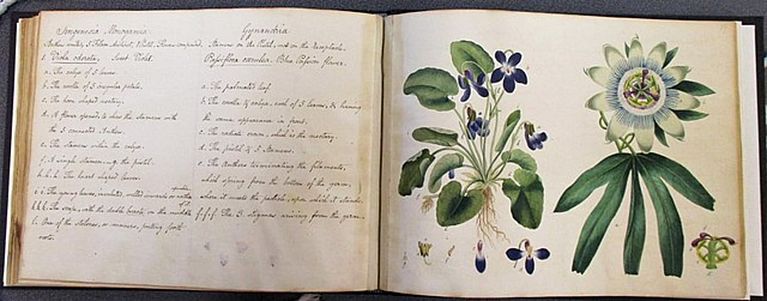 Syngenesia Monogamia
Anthers united, 5 Filam. distinct, 1 Pistil, Flower compound.
1. Viola odorata, Sweet Violet.
a. The calyx of 5 leaves.
b. The corolla of 5 irregular petals.
c. The horn shaped nectary.
d. A flower opened, to shew the stamens with
the 5 connected Anthers.
e. The stamens within the calyx.
f. A single stamen, g. the pistil.
h.h.h. The heart shaped leaves.
i.i. The young leaves, involuted, rolled inwards
k.k.k. The scape, with the double bracts on the middle
l. One of the stolones, or runners, putting forth
roots.
Gynandria
Stamens on the Pistil, not on the Receptacle.
Passiflora cærulea, Blue Passion flower.
a. The palmated leaf.
b. The corolla & calyx, each of 5 leaves, & having
the same appearance in front.
c. The radiate crown, which is the nectary.
d. The pistil & 5 Stamens.
e. The Anthers terminating the filaments,
which spring from the bottom of the germ,
where it meets the pistil, upon which it stands.
f.f.f. The 3 stigmas arising from the germ.